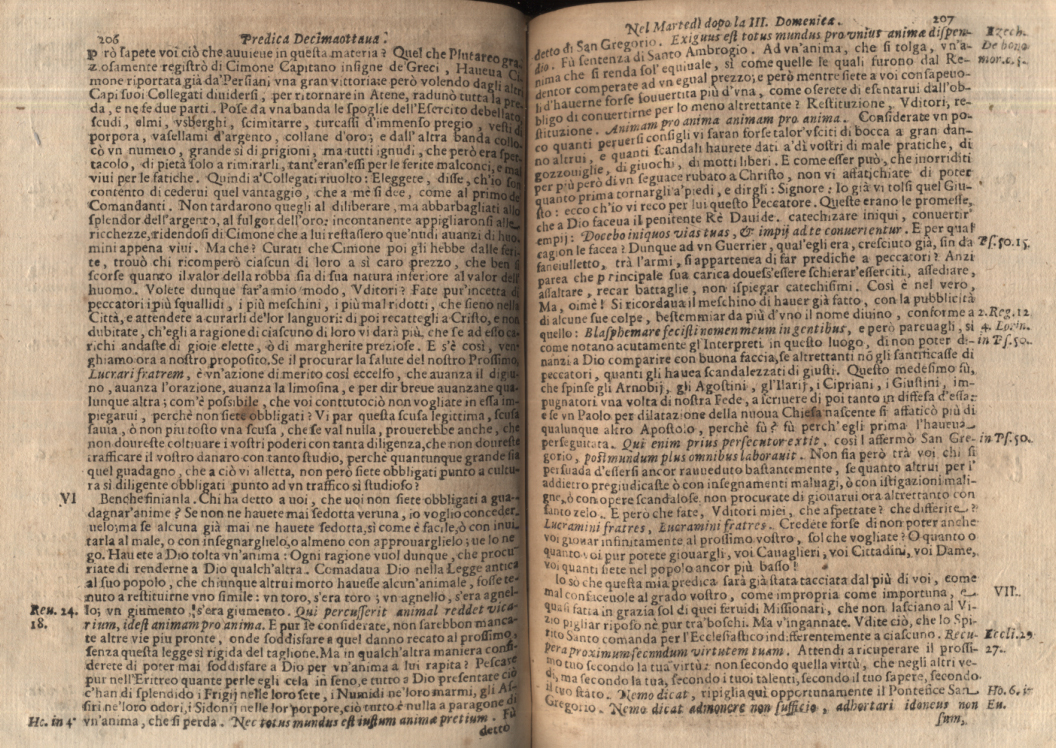 206 Predica Decimaottaua.
però sapete voi ciò che auuiene in questa materia? Quel che Plutarco gra-
ziosamente registrò di Cimone Capitano insigne de'Greci, Haueua Ci-
mone riportata già da'Persiani vna gran vittoria: e però volendo dagli altri
Capi suoi Collegati diuidersi, per ritornare in Atene, radunò tutta la pre-
da, e ne fe due parti. Pose da vna banda le spoglie dell'Esercito debellato,
scudi, elmi, vsberghi, scimitarre, turcassi d'immenso pregio, vesti di
porpora, vasellami d'argento, collane d'oro; e dall'altra banda collo-
cò vn numero, grande sì di prigioni, ma tutti ignudi, che però era spet-
tacolo, di pietà solo a rimirarli, tant'eran'essi per le ferite malconci, e mal
viui per le fatiche. Quindi a'Collegati riuolto: Eleggete, disse, ch'io son
contento di cederui quel vantaggio, che a me si dee, come al primo de'
Comandanti. Non tardarono quegli al diliberare, ma abbarbagliati allo
splendor dell'argento, al fulgor dell'oro: incontanente appigliaronsi alle
ricchezze, ridendosi di Cimone che a lui restassero que'nudi auanzi di huo-
mini appena viui. Ma che? Curati che Cimone poi gli hebbe dalle feri-
te, trouò chi ricomperò ciascun di loro a sì caro prezzo, che ben si
scorse quanto il valor della robba sia di sua natura inferiore al valor dell'
huomo. Volete dunque far'a mio modo, Vditori? Fate pur'incetta di
peccatori i più squallidi, i più meschini, i più mal ridotti, che sieno nella
Città, e attendete a curarli de'lor languori: di poi recategli a Cristo, e non
dubitate, ch'egli a ragione di ciascuno di loro vi darà più, che se ad esso ca-
richi andaste di gioie elette, ò di margherite preziose. E s'è così, ven-
ghiamo ora a nostro proposito. Se il procurar la salute del nostro Prossimo,
Lucrari fratrem, è vn'azione di merito così eccelso, che auanza il digiu-
no, auanza l'orazione, auanza la limosina, e per dir breue auanzane qua-
lunque altra; com'è possibile, che voi contuttociò non vogliate in essa im-
piegarui, perchè non siete obbligati? Vi par questa scusa legittima, scusa
sauia, ò non più tosto vna scusa, che se val nulla, prouerebbe anche, che
non doureste coltiuare i vostri poderi con tanta diligenza, che non doureste
trafficare il vostro danaro con tanto studio, perche quantunque grande sia
quel guadagno, che a ciò vi alletta, non però siete obbligati punto a cultu-
ra sì diligente obbligati punto ad vn traffico sì studioso?
VI Benche finianla. Chi ha detto a uoi, che uoi non siete obbligati a gua-
dagnar'anime? Se non ne hauete mai sedotta veruna, io voglio conceder-
uelo; ma se alcuna già mai ne hauete sedotta, sì come è facile, ò con inui-
tarla al male, o con insegnarglielo, o almeno con approuarglielo; ue lo ne-
go. Hauete a Dio tolta vn'anima: Ogni ragione vuol dunque, che procu-
riate di renderne a Dio qualch'altra. Comadaua Dio nella Legge antica
al suo popolo, che chiunque altrui morto hauesse alcun'animale, fosse te-
nuto a restituirne vno simile: vn toro, s'era toro; vn agnello, s'era agnel-
Reu. 24. lo; vn giumento, s'era giumento. Qui percusserit animal reddet vica-
18. rium, idest animam pro anima. E pur se considerate, non sarebbon manca-
te altre vie piu pronte, onde soddisfare a quel danno recato al prossimo,
senza questa legge sì rigida del taglione. Ma in qualch'altra maniera consi-
derete di poter mai soddisfare a Dio per vn'anima a lui rapita? Pescate
pur nell'Eritreo quante perle egli cela in seno, e tutto a Dio presentate ciò
c'han di splendido i Frigij nelle loro sete, i Numidi ne'loro marmi, gli As-
siri ne'loro odori, i Sidonij nelle lor porpore, ciò tutto è nulla a paragone di
Ho. in 4. vn'anima, che si perda. Nec totus mundus est iustum animæ pretium. Fù
detto
Nel Martedì dopo la III. Domenica. 207
detto di San Gregorio. Exiguus est totus mundus pro vnius animæ dispen- Ezech.
dio. Fù sentenza di Santo Ambrogio. Ad vn'anima, che si tolga, vn'a- De bono
nima che si renda sol'equiuale, sì come quelle le quali furono dal Re- mor. c. 5.
dentor comperate ad vn egual prezzo; e però mentre siete a voi consapeuo-
li d'hauerne forse souuertita più d'vna, come oserete di esentarui dall'ob-
bligo di conuertirne per lo meno altrettante? Restituzione, Vditori, re-
stituzione. Animam pro anima animam pro anima. Considerate vn po-
co quanti peruersi consigli vi saran forse talor'vsciti di bocca a gran dan-
no altrui, e quanti scandali haurete dati a'dì vostri di male pratiche, di
gozzouiglie, di giuochi, di motti liberi. E come esser può, che inorriditi
per più però di vn seguace rubato a Christo, non vi affatichiate di poter
quanto prima tornargli a'piedi, e dirgli: Signore: Io già vi tolsi quel Giu-
sto: ecco ch'io vi reco per lui questo Peccatore. Queste erano le promesse,
che a Dio faceua il penitente Rè Dauide. catechizare iniqui, conuertir'
empij: Docebo iniquos vias tuas, & impij ad te conuertentur. E per qual Ps. 50. 15.
cagion le facea? Dunque ad vn Guerrier, qual'egli era, cresciuto già, fin da
fanciulletto, trà l'armi, si appartenea di far prediche a peccatori? Anzi
parea che principale sua carica douess'essere schierar'esserciti, assediare,
assaltare, recar battaglie, non ispiegar catechismi. Così è nel vero,
Ma, oimè! Si ricordaua il meschino di hauer già fatto, con la pubblicità
di alcune sue colpe, bestemmiar da più d'vno il nome diuino, conforme a 2. Reg. 12.
quello: Blasphemare fecisti nomen meum in gentibus, e però paruagli, sì 4. Lorin.
come notano acutamente gl'Interpreti in questo luogo, di non poter di- in Ps. 50.
nanzi a Dio comparire con buona faccia, se altrettanti nó gli santificasse di
peccatori, quanti gli hauea scandalezzati di giusti. Questo medesimo fù,
che spinse gli Arnobij, gli Agostini, gl'Ilarij, i Cipriani, i Giustini, im-
pugnatori vna volta di nostra Fede, a scriuere di poi tanto in diffesa d'essa:
e se vn Paolo per dilatazione della nuoua Chiesa nascente si affaticò più di
qualunque altro Apostolo, perchè fù? fù perch'egli prima l'haueua
perseguitata. Qui enim prius persecutor extitit, così l'affermò San Gre- in Ps. 50.
gorio, postmundum plus omnibus laborauit. Non sia però trà voi chi si
persuada d'essersi ancor rauueduto bastantemente, se quanto altrui per l'
addietro pregiudicaste ò con insegnamenti maluagi, ò con istigazioni mali-
gne, ò con opere scandalose, non procurate di giouarui ora altrettanto con
santo zelo. E però che fate, Vditori miei, che aspettate? che differite?
Lucramini fratres, Lucramini fratres. Credete forse di non poter anche
voi giouar infinitamente al prossimo vostro, sol che vogliate? O quanto o
quanto voi pur potete giouargli, voi Cauaglieri, voi Cittadini, voi Dame,
voi quanti siete nel popolo ancor più basso!
Io sò che questa mia predica sarà già stata tacciata dal più di voi, come
mal confaceuole al grado vostro, come impropria come importuna, e VII.
quasi fatta in grazia sol di quei feruidi Missionari, che non lasciano al Vi-
zio pigliar riposo nè pur trà'boschi. Ma v'ingannate. Vdite ciò, che lo Spi-
rito Santo comanda per l'Ecclesiastico indifferentemente a ciascuno. Recu- Eccli. 29.
pera proximum secundum virtutem tuam. Attendi a ricuperare il prossi- 27.
mo tuo secondo la tua virtù: non secondo quella virtù, che negli altri ve-
di, ma secondo la tua, secondo i tuoi talenti, secondo il tuo sapere, secondo
il tuo stato. Nemo dicat, ripiglia quì opportunamente il Pontefice San Ho. 6. in
Gregorio. Nemo dicat admonere non sufficio, adhortari idoneus non Eu.
sum,